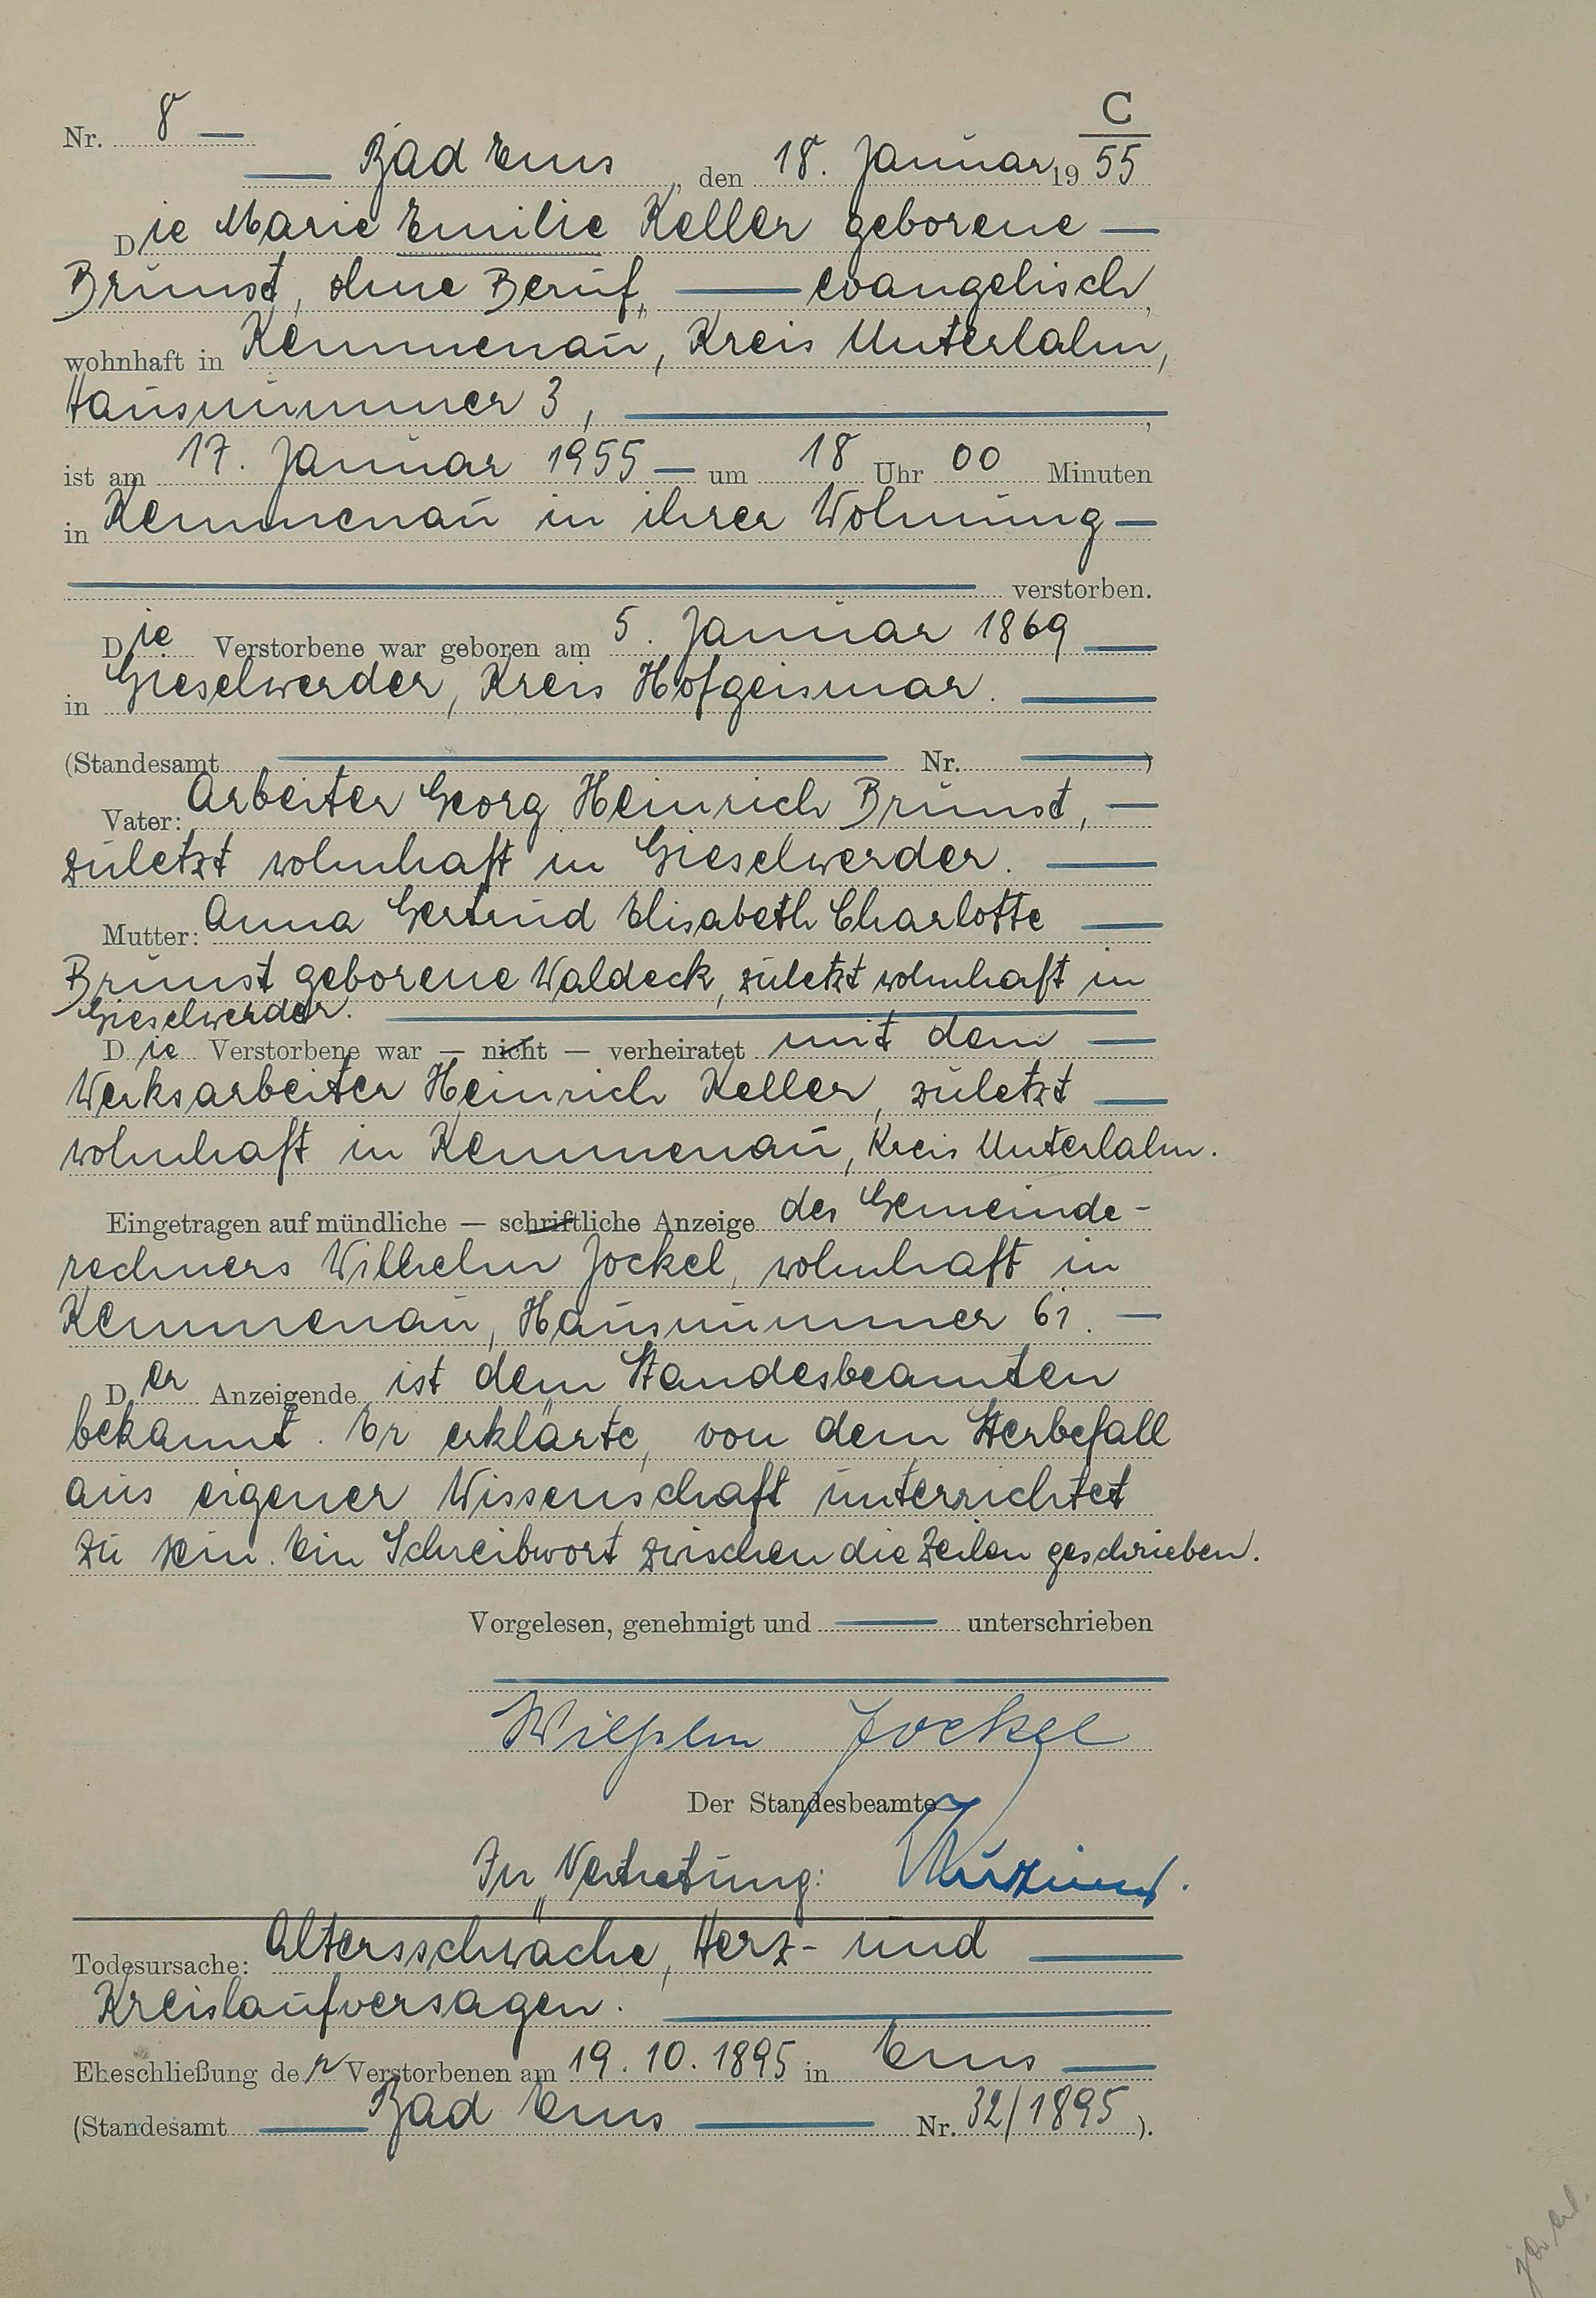 C
Nr. 8 —
— Bad Ems, den 18. Januar 19 55
Die Marie Emilie Keller geborene —
Brunst, ohne Beruf, — evangelisch,
wohnhaft in Kemmenau, Kreis Unterlahn,
Hausnummer 3, —,
ist am 17. Januar 1955 — um 18 Uhr 00 Minuten
in Kemmenau in ihrer Wohnung —
— verstorben.
Die Verstorbene war geboren am 5. Januar 1869 —
in Gieselwerder, Kreis Hofgeismar. —
(Standesamt — Nr. —)
Vater: Arbeiter Georg Heinrich Brunst, —
zuletzt wohnhaft in Gieselwerder. —
Mutter: Anna Gertrud Elisabeth Charlotte —
Brunst geborene Waldeck, zuletzt wohnhaft in
Gieselwerder. —
Die Verstorbene war — nicht — verheiratet mit dem —
Werksarbeiter Heinrich Keller, zuletzt —
wohnhaft in Kemmenau, Kreis Unterlahn.
Eingetragen auf mündliche — schriftliche Anzeige des Gemeinde-
rechners Wilhelm Jockel, wohnhaft in
Kemmenau, Hausnummer 61. —
Der Anzeigende ist dem Standesbeamten
bekannt. Er erklärte, von dem Sterbefall
aus eigener Wissenschaft unterrichtet
zu sein. Ein Schreibwort zwischen die Zeilen geschrieben.
Vorgelesen, genehmigt und — unterschrieben
Wilhelm Jockel
Der Standesbeamte
In Vertretung:
Todesursache: Altersschwäche, Herz- und —
Kreislaufversagen. —
Eheschließung der Verstorbenen am 19.10.1895 in Ems —
(Standesamt — Bad Ems — Nr. 32/1895).